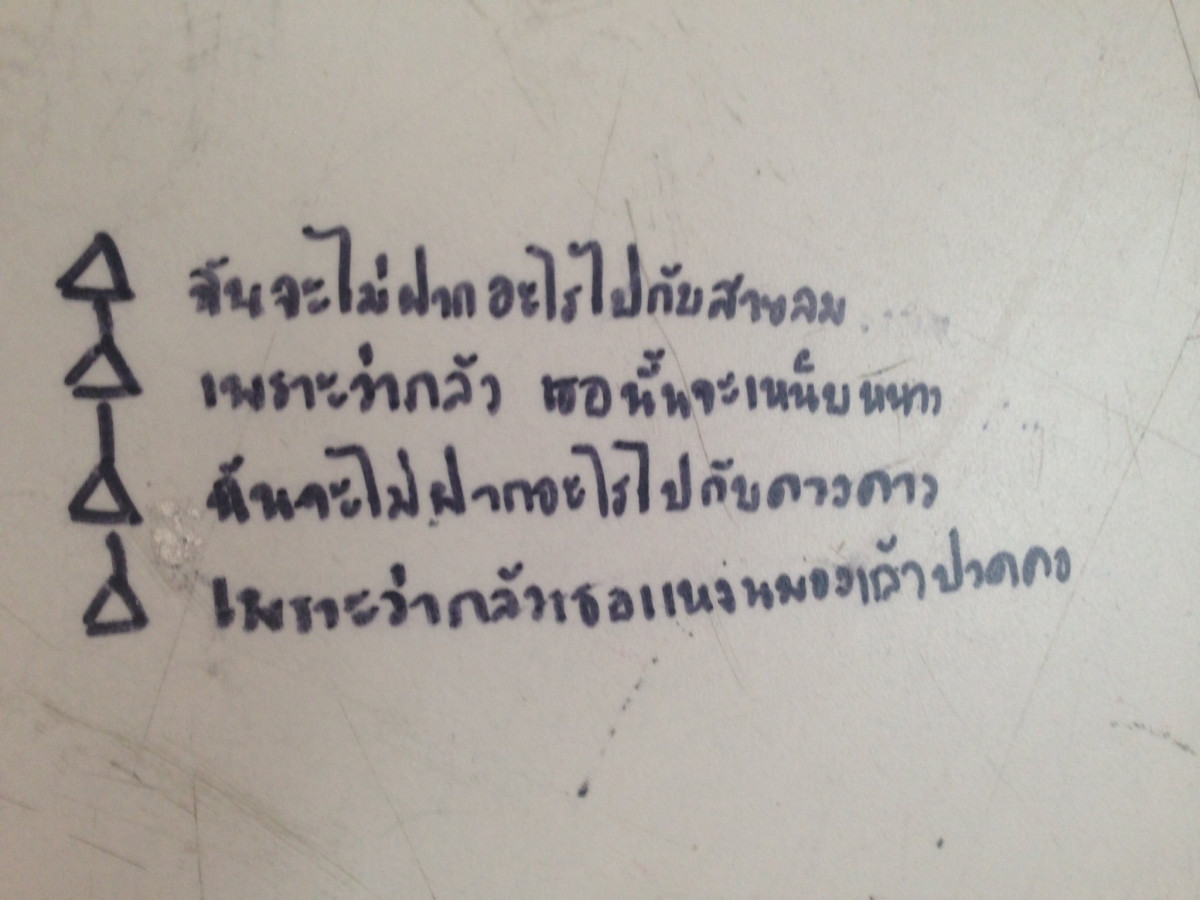 ฉันจะไม่ฝากอะไรไปกับสายลม
เพราะว่ากลัว เธอนั้นจะเหน็บหนาว
ฉันจะไม่ฝากอะไรไปกับดวงดาว
เพราะว่ากลัวเธอแหงนมองแล้วปวดคอ